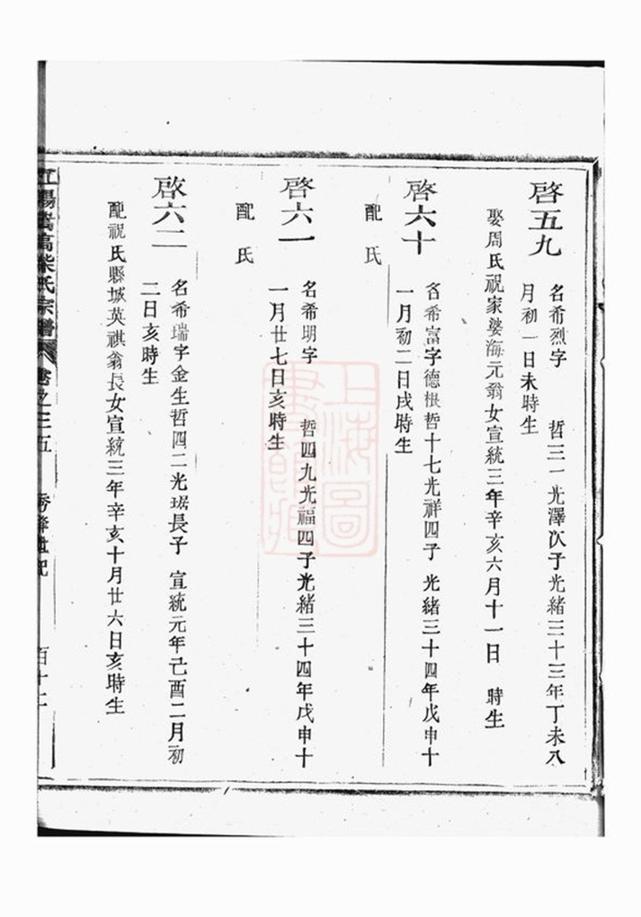 啓五九
名希烈字　哲三一光澤次子光緒三十三年丁未八
月初一日未時生
娶周氏祝家婆海元翁女宣統三年辛亥六月十一日　時生
啓六十
名希富字德根哲十七光祥四子　光緒三十四年戊申十
一月初二日戌時生
配　氏
啓六一
名希明字　哲四九光福四子光緒三十四年戊申十
一月廿七日亥時生
配　氏
啟六二
名希瑞字金生哲四二光琚長子　宣統元年己酉二月初
二日亥時生
配祝氏縣城英祺翁長女宣統三年辛亥十月廿六日亥時生
高柴氏宗譜
卷之三五
上海圖書館藏